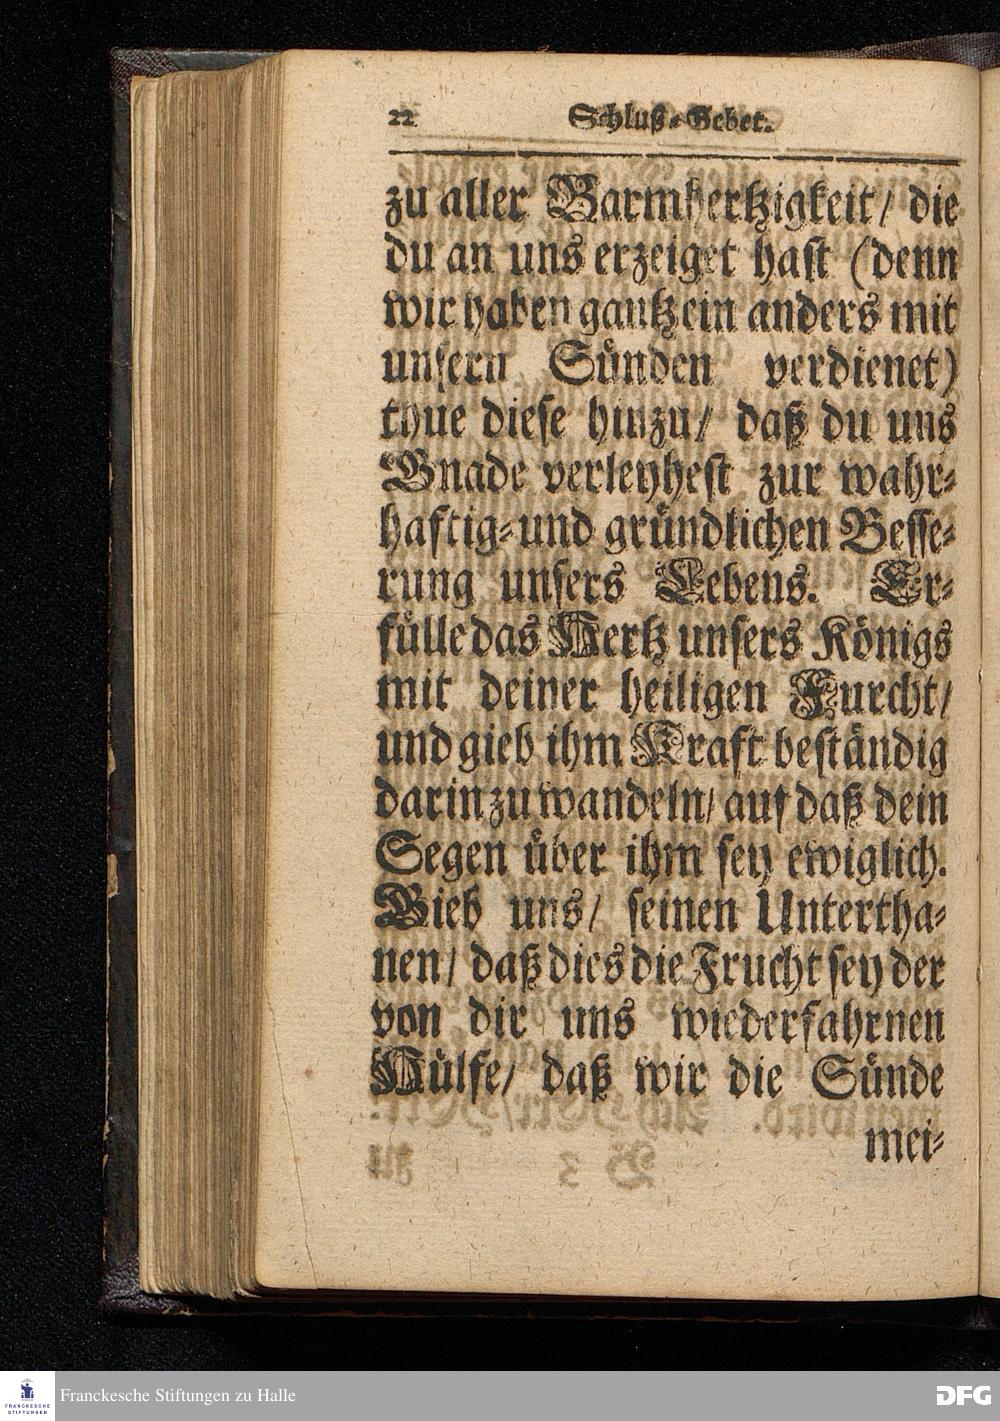 22 Schluß-Gebet.
zu aller Barmhertzigkeit/ die
du an uns erzeiget hast (denn
wir haben gantz ein anders mit
unsern Sünden verdienet)
thue diese hinzu/ daß du uns
Gnade verleyhest zur wahr-
haftig-und gründlichen Besse-
rung unsers Lebens. Er-
fülle das Hertz unsers Königs
mit deiner heiligen Furcht/
und gieb ihm Kraft beständig
darin zu wandeln/ auf daß dein
Segen über ihm sey ewiglich.
Gieb uns/ seinen Untertha-
nen/ daß dies die Frucht sey der
von dir uns wiederfahrnen
Hülfe/ daß wir die Sünde
mei-
FRANCKESCHE
STIFTUNGEN
Franckesche Stiftungen zu Halle
DFG